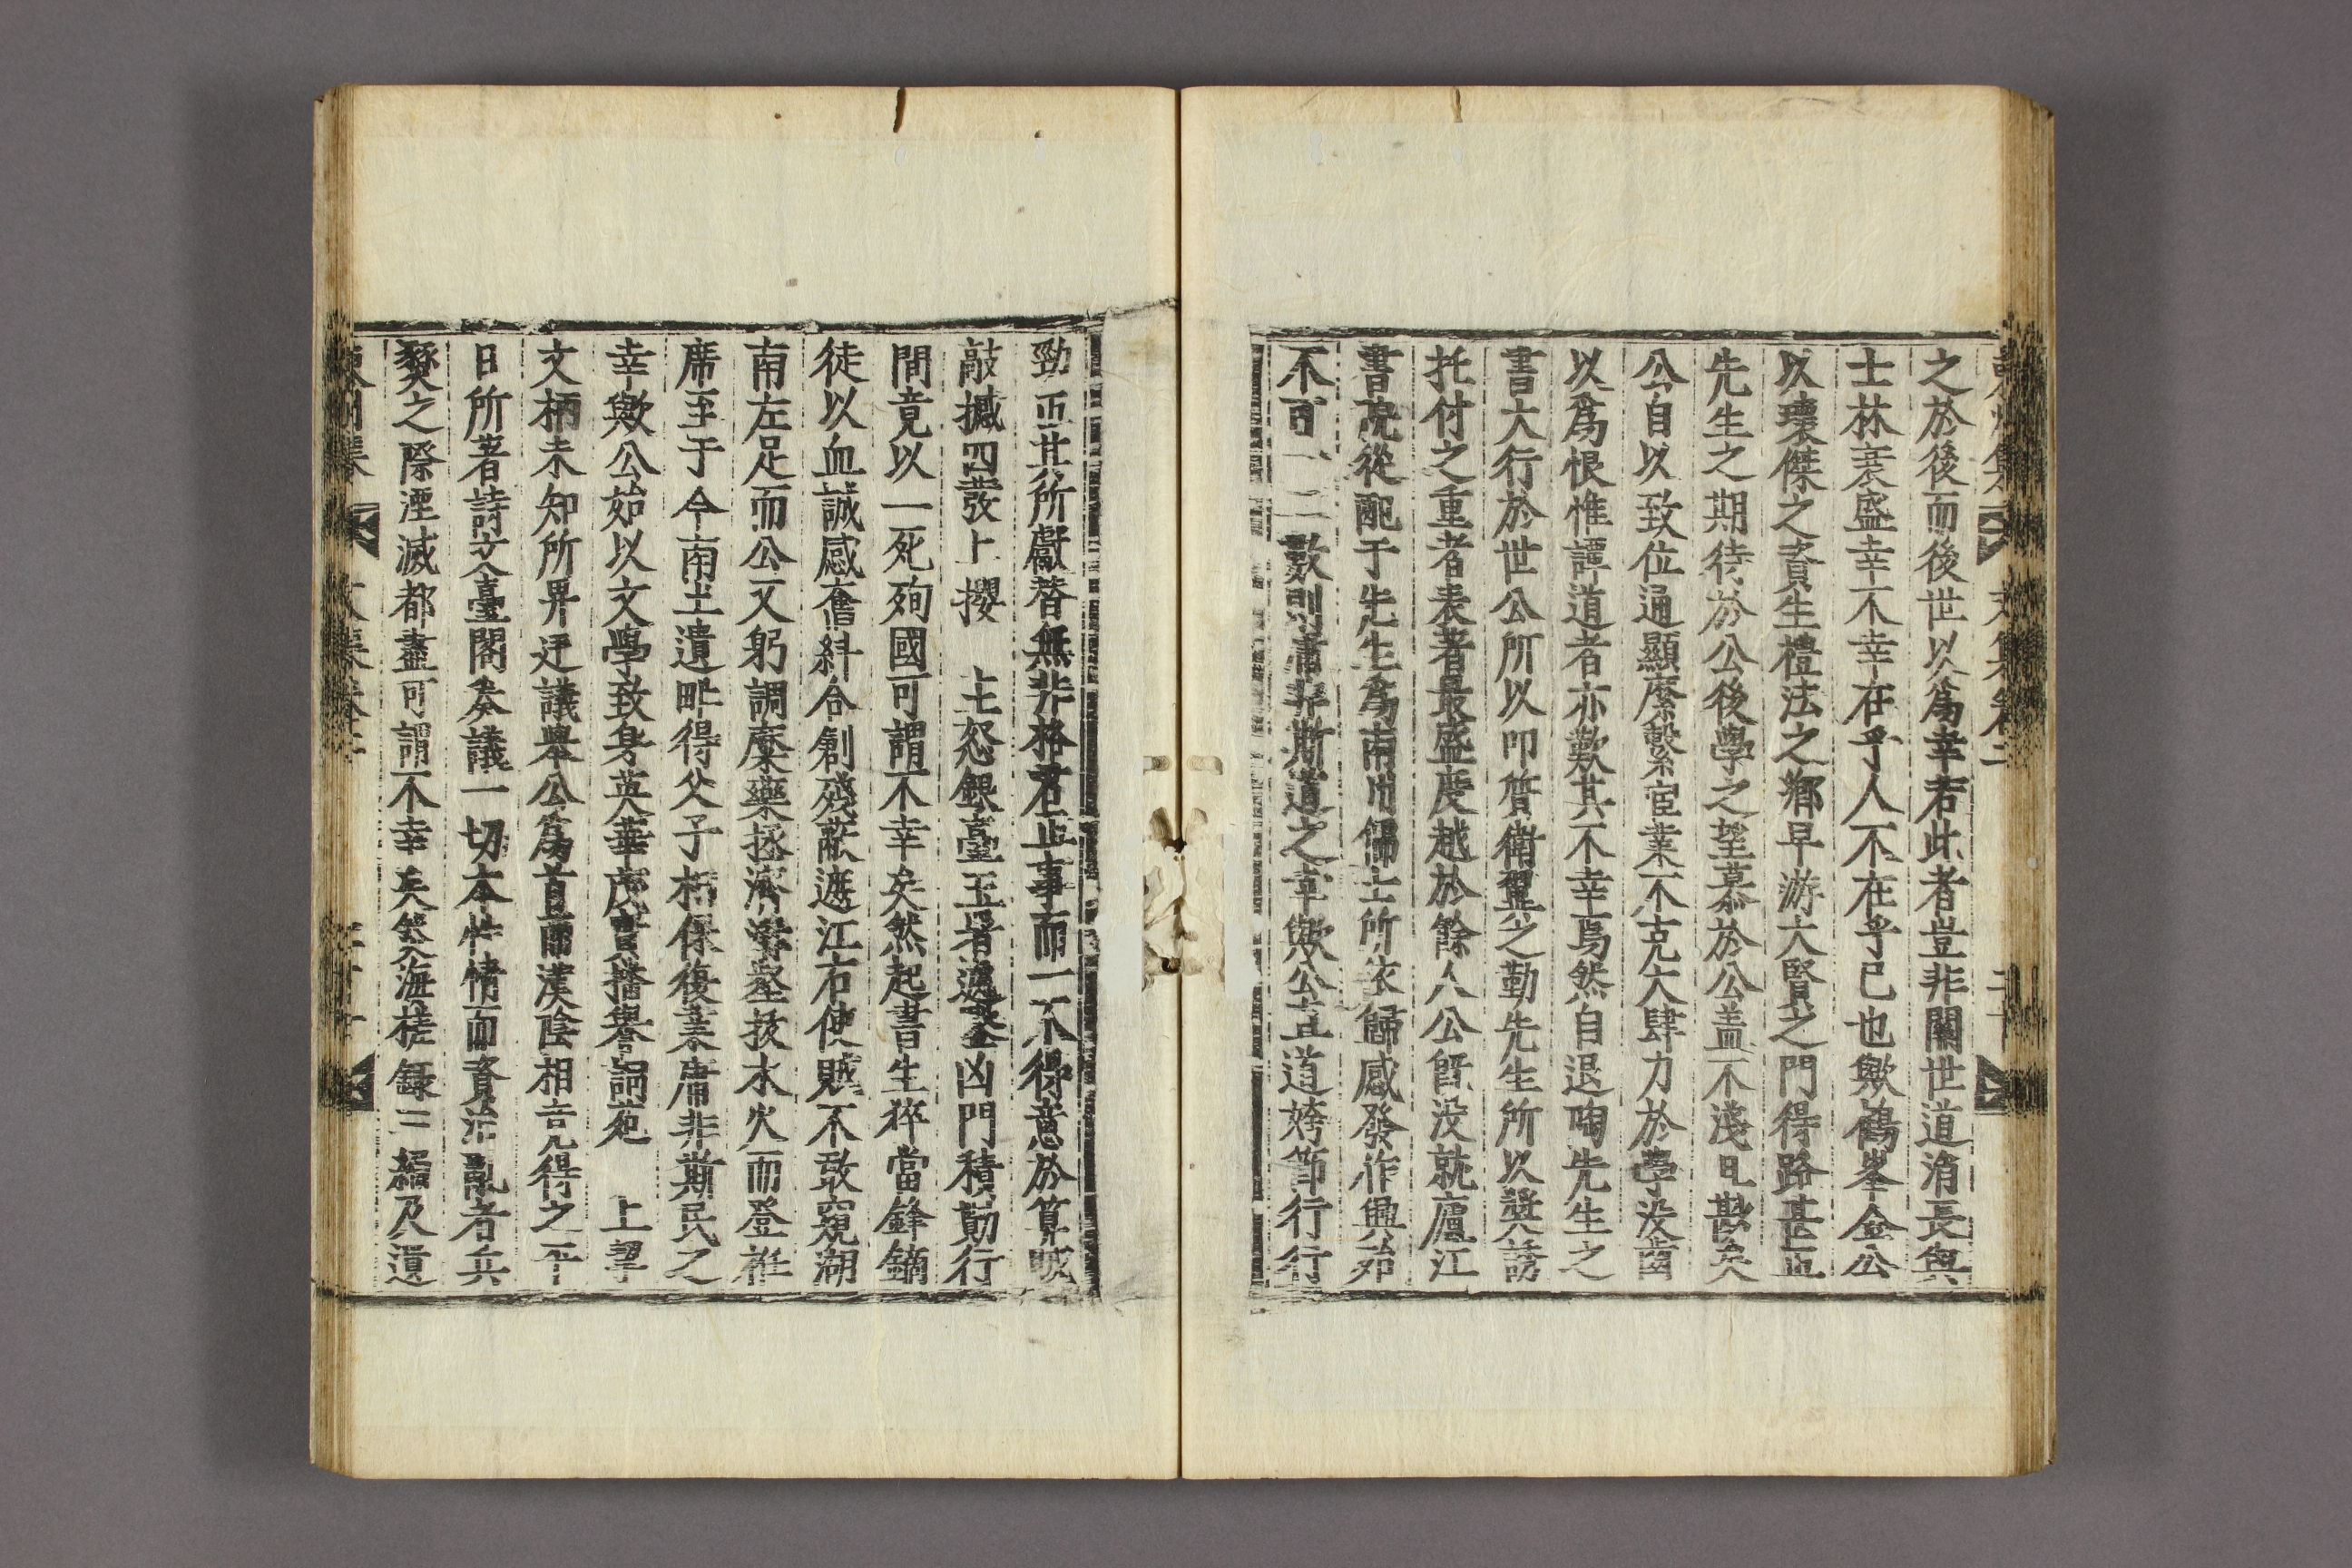 之於後而後世以爲幸若此者豈非關世道消長與
士林衰盛幸不幸在乎人不在乎己也歟鶴峯金公
以瓌傑之資生禮法之鄕早游大賢之門得路甚正
先生之期待於公後學之望慕於公盖不淺尠矣
公自以致位通顯縻繫宦業不克大肆力於學没齒
以爲恨惟譚道者亦歎其不幸焉然自退陶先生之
書大行於世公所以叩質衛翼之勤先生所以奬誘
托付之重者表著最盛度越於餘人公旣没就廬江
書院從配于先生爲南州儒士所依歸感發作興殆
不可一二數則庸非斯道之幸歟公直道姱節行行
勁正其所獻替無非格君正事而一不得意於筭畈
敲撼四發上攖 上怒銀臺玉署遞登凶門積勩行
間竟以一死殉國可謂不幸矣然起書生猝當鋒鏑
徒以血誠感奮糾合創殘蔽遮江右使賊不敢窺湖
南左足而公又躬調糜藥拯濟溝壑拔水火而登袵
席至于今南土遺畔得父子相保復業庸非斯民之
幸歟公始以文學致身英華茂實播譽詞苑 上掌
文柄未知所畀廷議擧公爲首而漢陰相言不得之平
日所著詩文臺閣奏議一切本性情而資治亂者兵
燹之際湮滅都盡可謂不幸矣然海槎錄三編及還
文集卷二